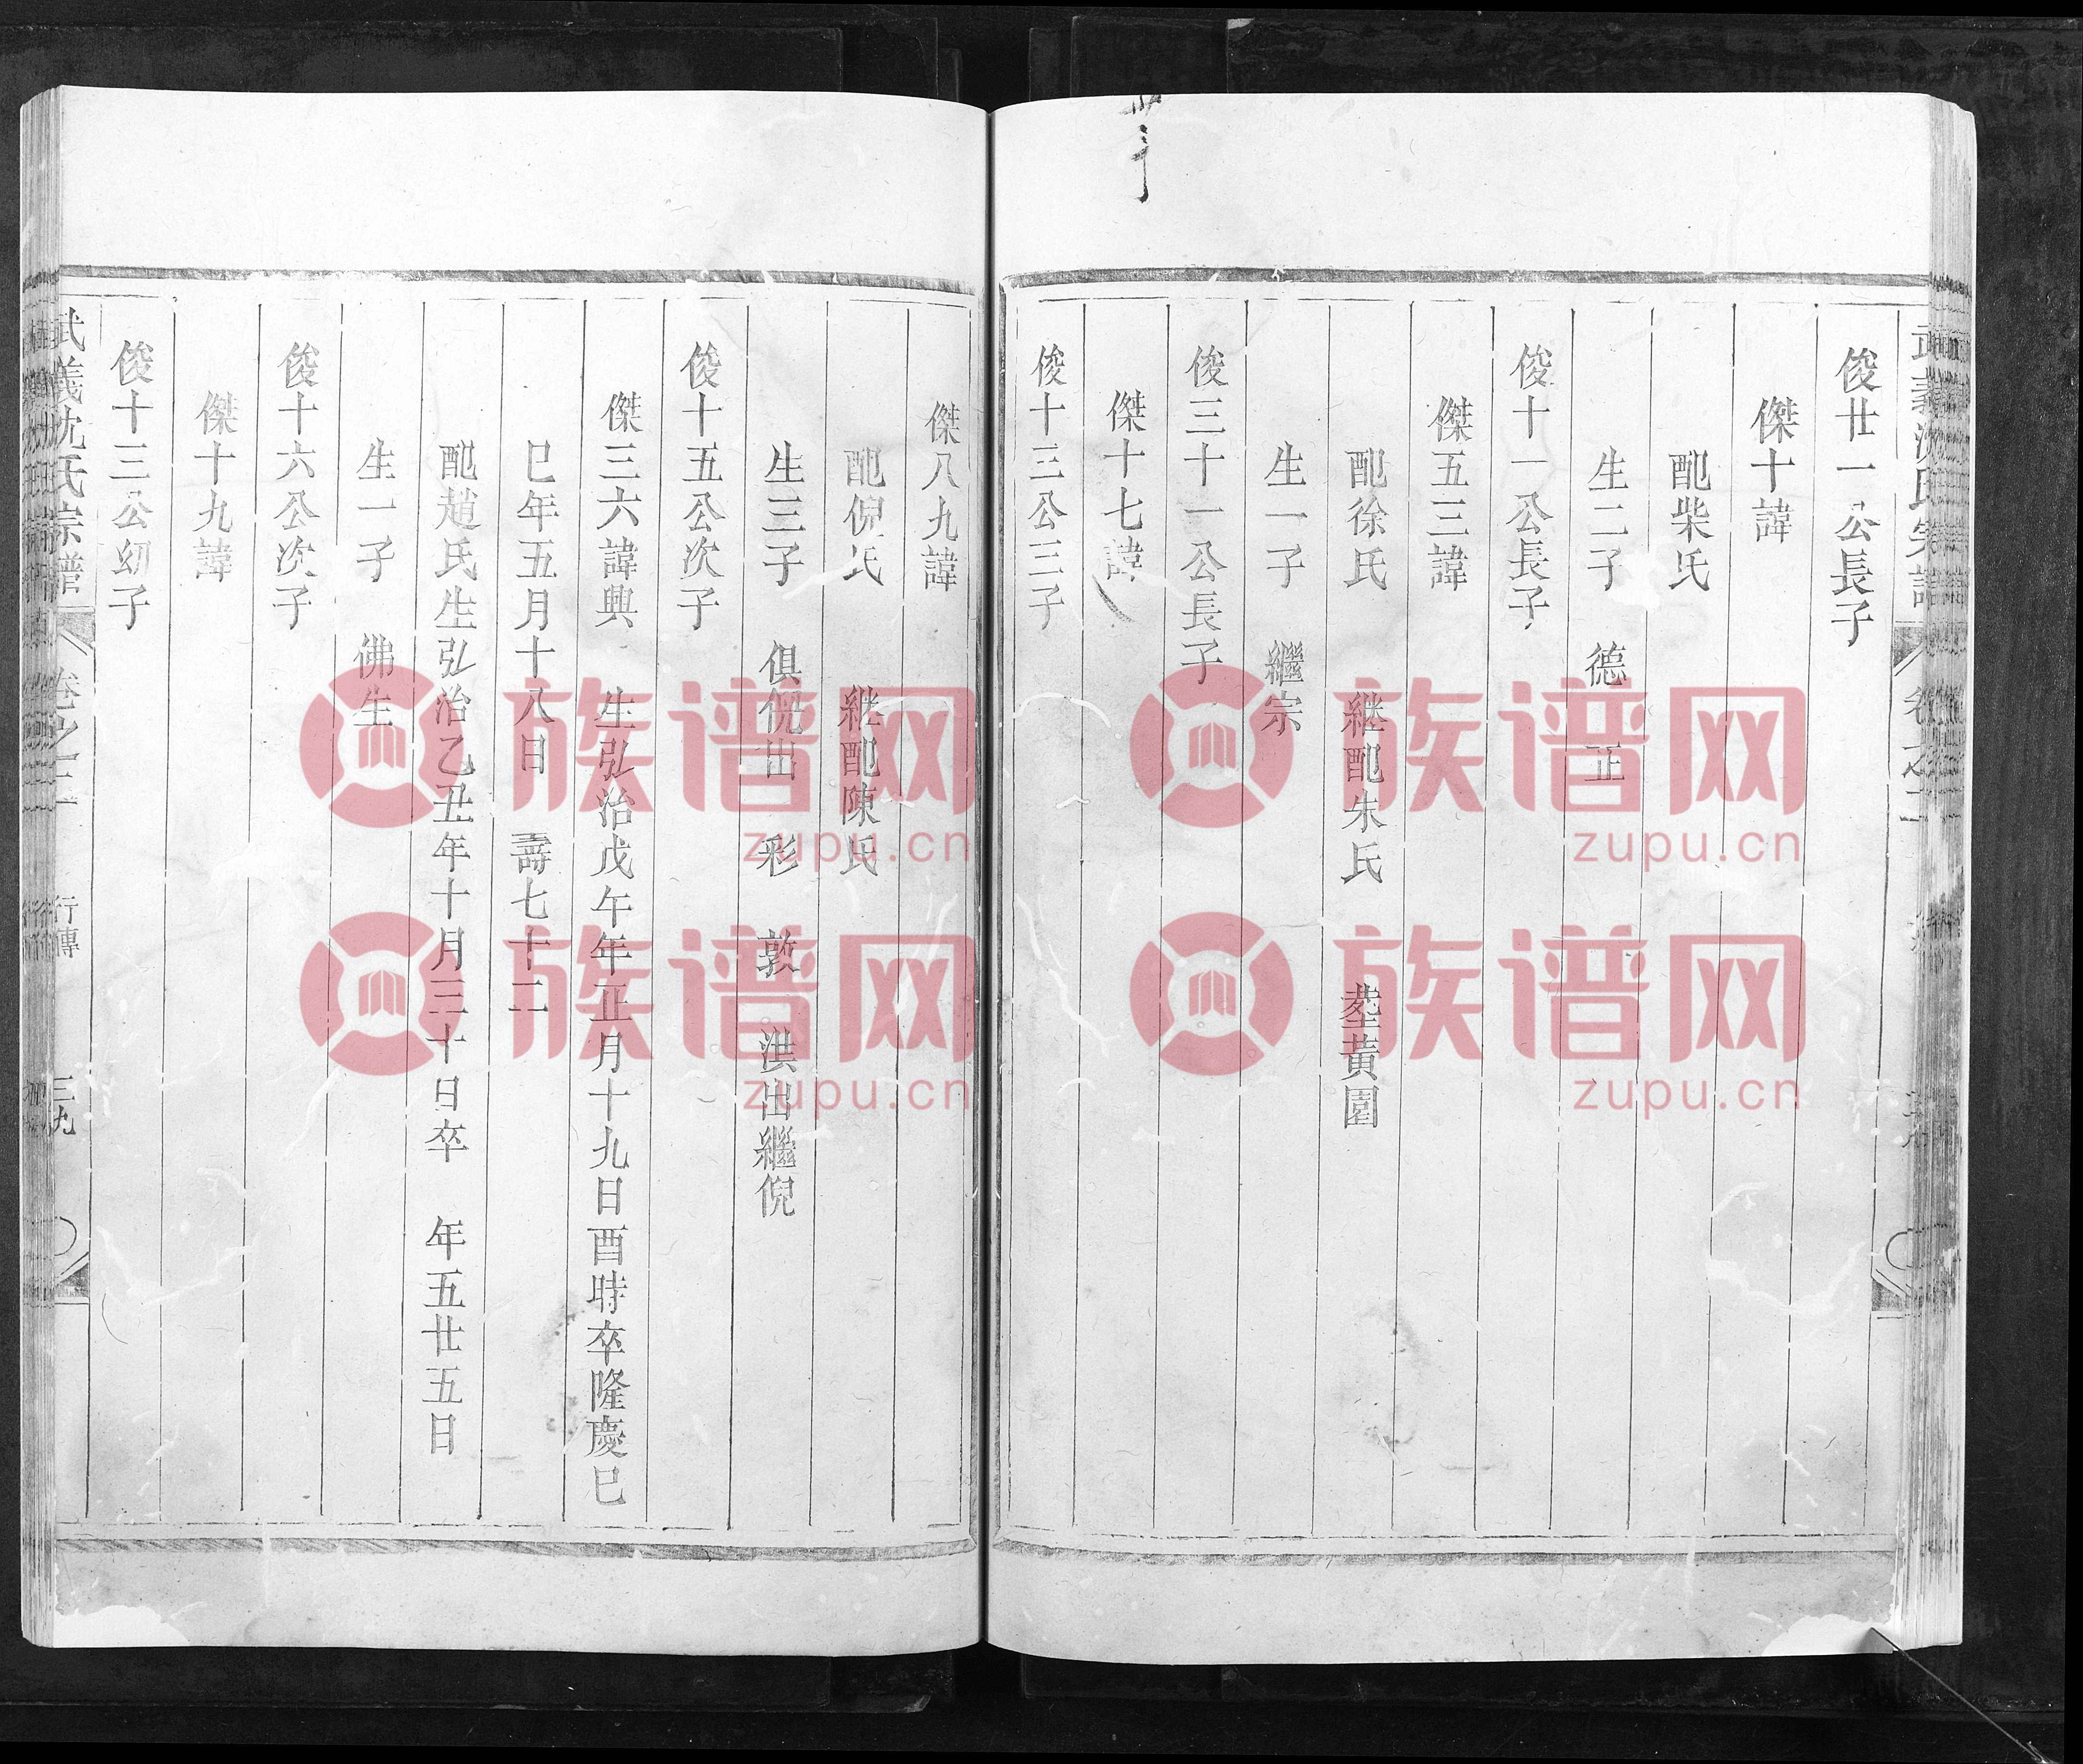 俊廿一公長子
傑十諱
配柴氏
生二子 德 正
俊十一公長子
傑五三諱
配徐氏 継配朱氏 塟黃園
生一子 繼宗
俊三十一公長子
傑十七諱
俊十三公三子
傑八九諱
配倪氏 継配陳氏
生三子 俱倪出 彩 敦 洪出繼倪
俊十五公次子
傑三六諱興 生弘治戊午年正月十九日酉時卒隆慶巳
巳年五月十八日 壽七十二
配趙氏生弘治乙丑年十月三十日卒 年五廿五日
生一子 佛生
俊十六公次子
傑十九諱
俊十三公幼子
武義沈氏宗譜 卷之二 行傳 三九
族谱网
zupu.cn
族谱网
zupu.cn
族谱网
zupu.cn
族谱网
zupu.cn